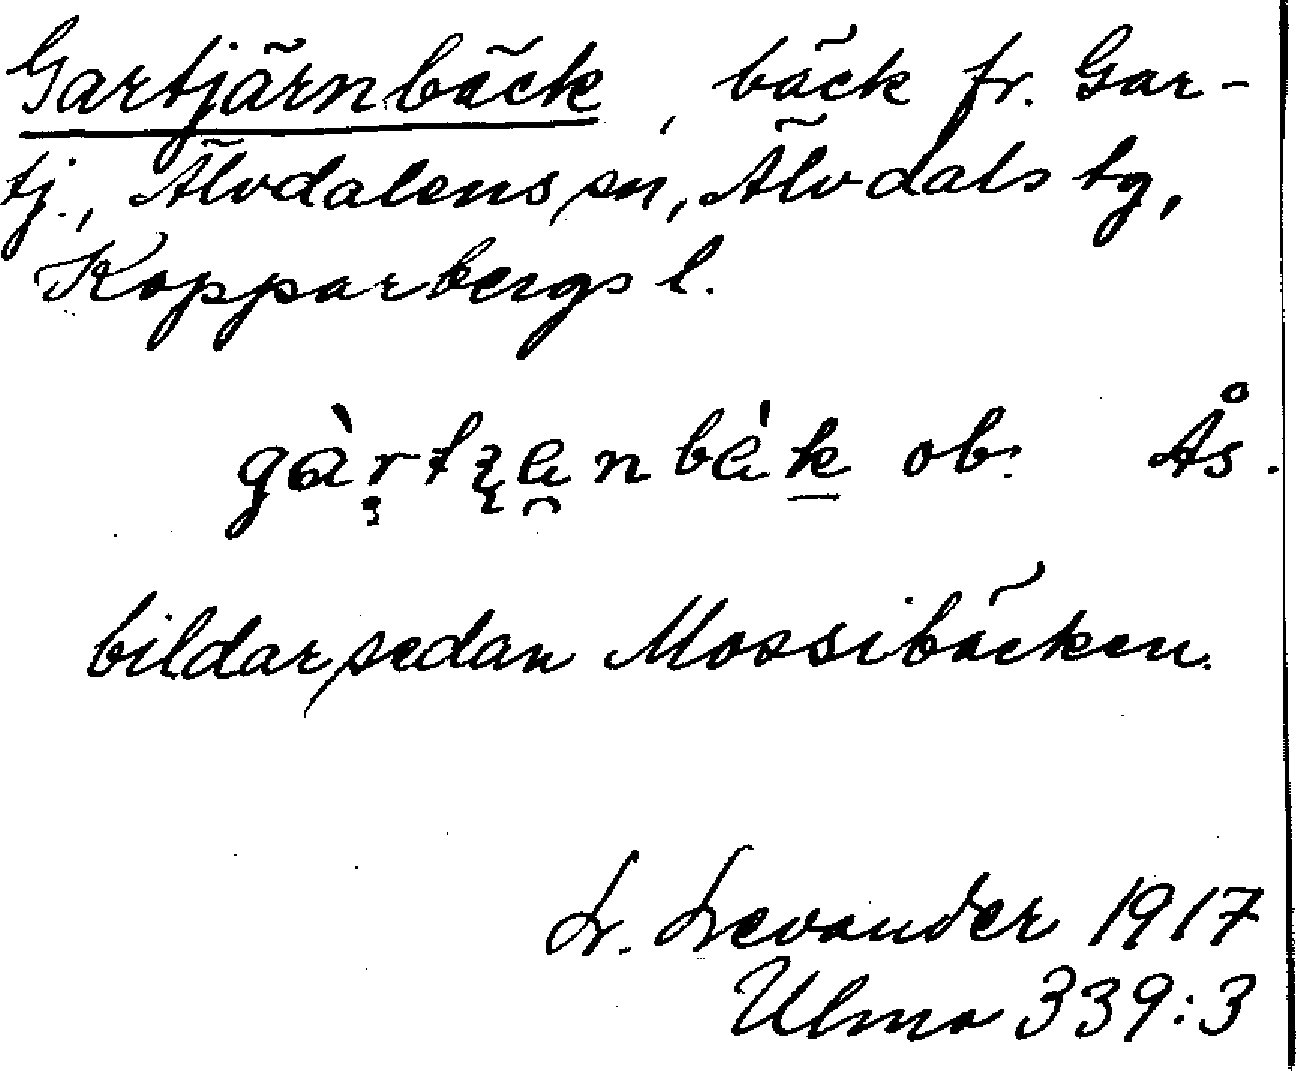 Gartjärnbäck, bäck fr. Gar-
tj., Älvdalens sn, Älvdals tg,
Kopparbergs l.
ob. Ås.
bildar sedan Mossibäcken.
L. Levander 1917
Ulma 339:3